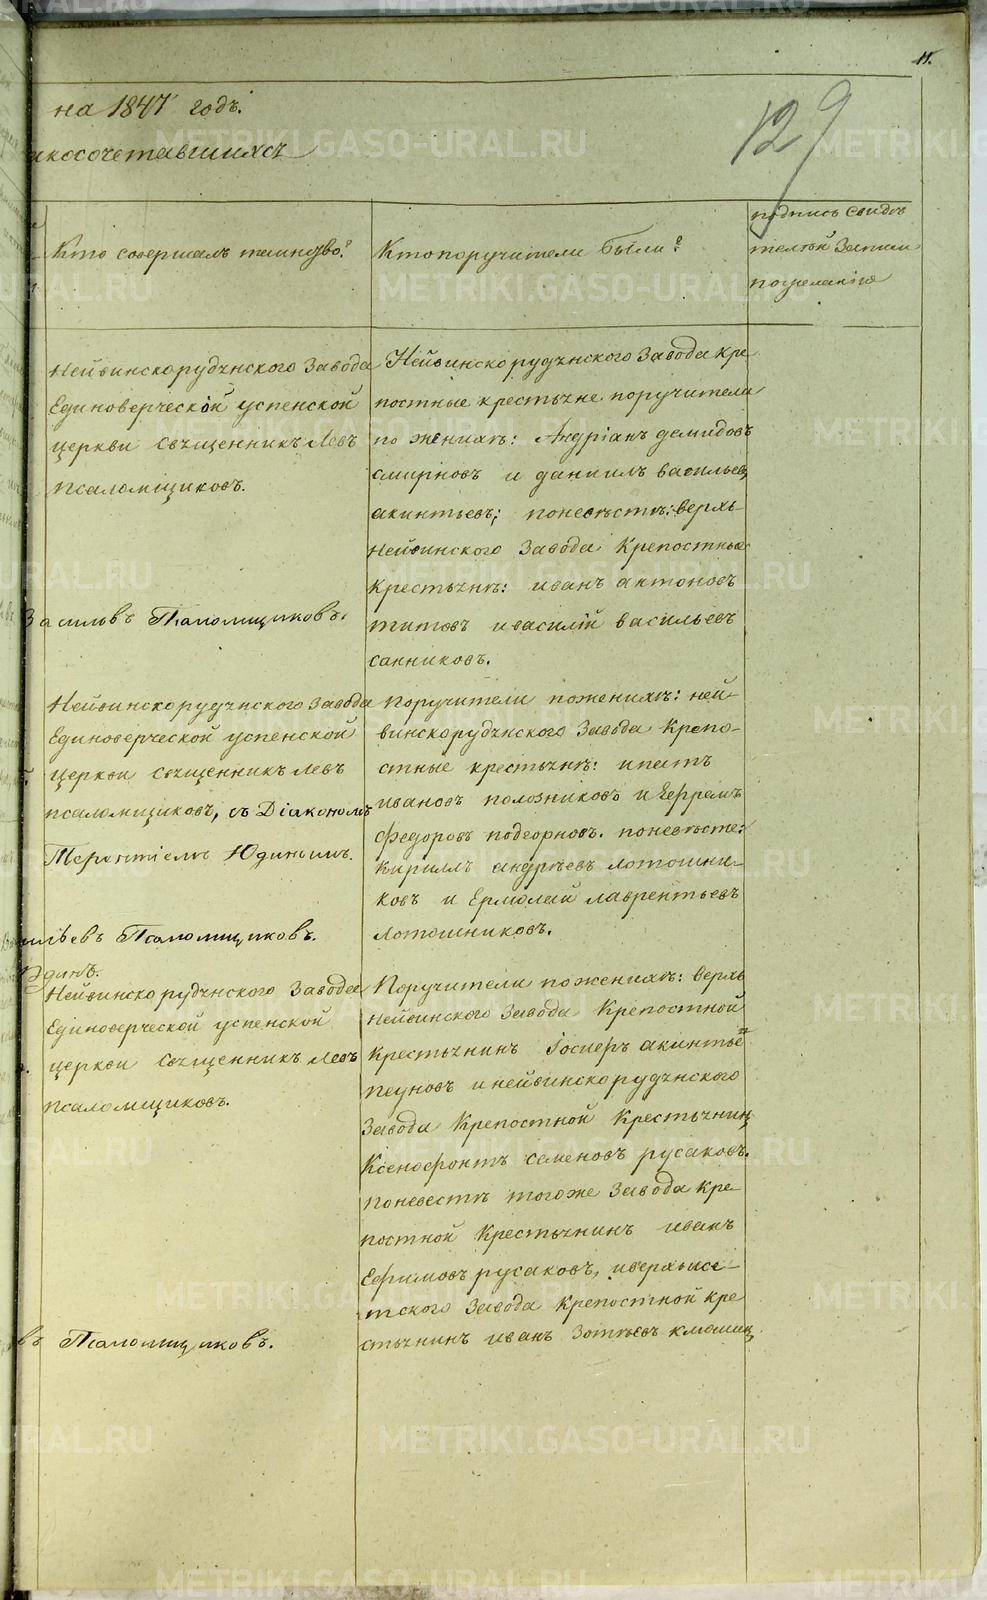 11.
на 1847 годъ.
129
акосочетавшихсѧ
Кто совершалъ таинство?
Кто поручители были?
подпись свидѣ
телѣй Записи
пожеланію
Нейвинскорудѧнского Завода
Единоверческой успенской
церкви свѧщенникъ Левъ
Псаломщиковъ.
Васильевъ Псаломщиковъ.
Нейвинскорудѧнского Завода кре
постные крестьѧне поручители
по женихѣ: Андріанъ демидовъ
смирновъ и даниилъ васильевъ
акинтьевъ; поневѣстѣ: верхъ-
Нейвинского Завода Крепостные
Крестьѧнѣ: иванъ антоновъ
титовъ и василій васильевъ
санниковъ.
Нейвинскорудѧнского Завода
Единоверческой успенской
церкви свѧщенникъ левъ
псаломщиковъ, съ Діакономъ
Терентіемъ Юдинымъ.
ильевъ Псаломщиковъ.
Юдинъ.
поручители поженихѣ: ней-
винскорудѧнского Завода Крепо-
стные крестьѧнѣ: ипатъ
ивановъ полозниковъ и Ефремъ
федоровъ подгорновъ. поневѣсте:
Кирилъ андрѣевъ лотошни-
ковъ и Ермолай лаврентьевъ
Лотошниковъ.
Нейвинскорудѧнского Завода
Едіноверческой успенской
церкви свѧщенникъ левъ
псаломщиковъ.
въ Псаломщиковъ.
Поручители поженихѣ: верхъ
Нейвинского Завода Крепостной
крестьѧнинъ Іосиеръ акинтье=
пеуновъ и нейвинскорудѧнского
Завода Крепостной Крестьѧнинъ
Ксенофронтъ семеновъ русаковъ.
Поневестѣ тогоже Завода Кре-
постной Крестьѧнинъ иванъ
Ефимовъ русаковъ, иверхъисе-
тского Завода Крепостной кре
стьѧнинъ иванъ Зотѣевъ
METRIKI.GASO-URAL.RU